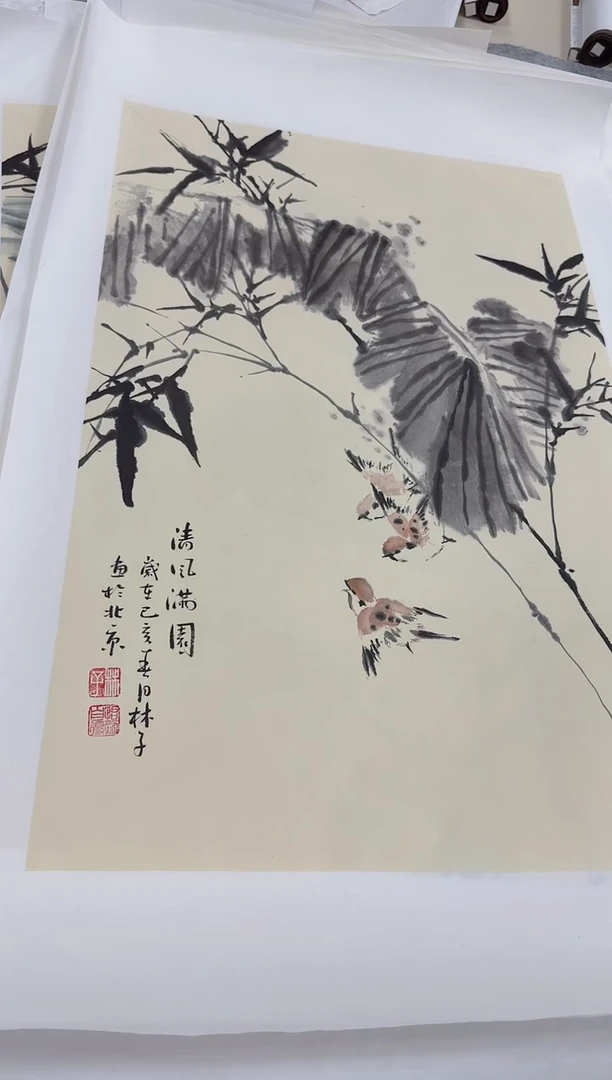 清风满園
歲在己亥春月林子
画於北京